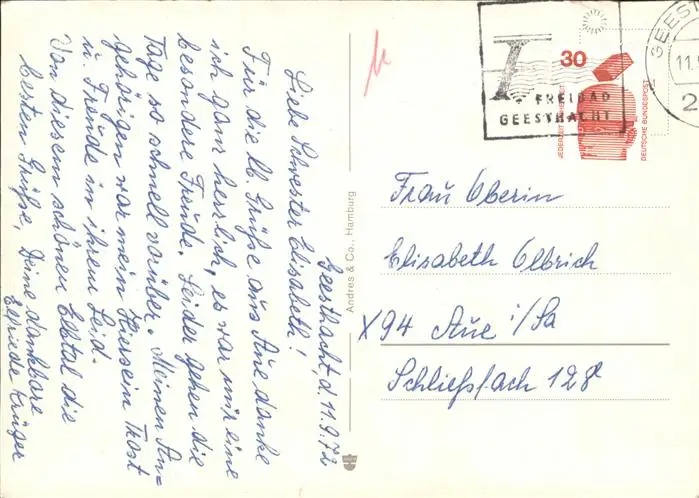 Geesthacht, d. 11.9.72
Liebe Schwester Elisabeth!
Für die lb. Grüße aus Aue danke
ich ganz herzlich, es war mir eine
besondere Freude. Leider gehen die
Tage so schnell vorüber. Meinen An-
gehörigen war mein Hiersein Trost
u. Freude in ihrem Leid.
Von diesem schönen Elbtal die
besten Grüße, Deine dankbare
Elfriede Krüger
Andres & Co., Hamburg
30
JEDERZEIT SICHERHEIT
DEUTSCHE BUNDESPOST
FREIBAD
GEESTHACHT
GEEST
11.
2
Frau Oberin
Elisabeth Olbrich
X94 Aue i/Sa
Schließfach 128